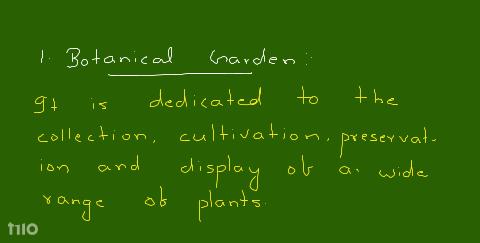 1. Botanical Garden:
It is dedicated to the
collection, cultivation, preservat-
ion and display of a wide
range of plants.